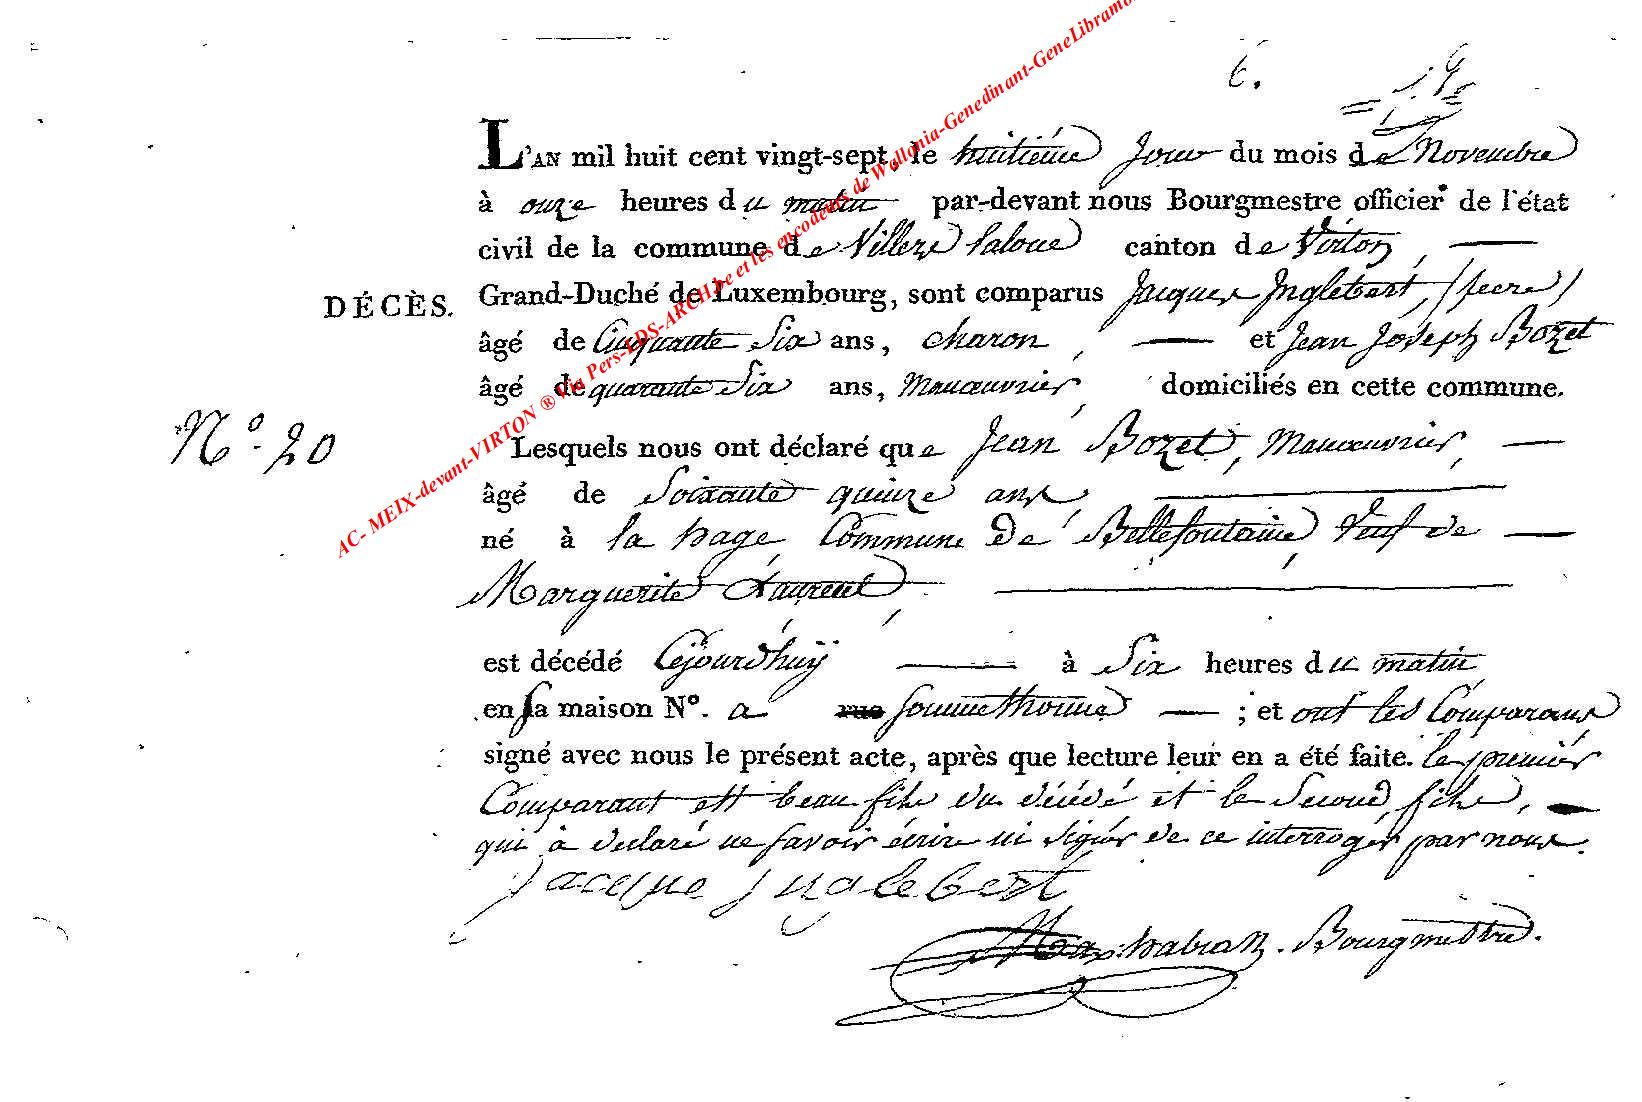 6. 19
L'AN mil huit cent vingt-sept, le huitième Jour du mois de Novembre
à onze heures du matin par-devant nous Bourgmestre officier de l'état
civil de la commune de Villers laloue canton de Virton,
DÉCÈS. Grand-Duché de Luxembourg, sont comparus Jacques Inglebert,
âgé de Cinquante Six ans, charon, et Jean Joseph Bozet
âgé de quarante Six ans, Manœuvrier, domiciliés en cette commune.
N.º 20 Lesquels nous ont déclaré que Jean Bozet, Manœuvrier,
âgé de Soixante quinze ans,
né à la hage, Commune de Bellefontaine, Veuf de
Marguerite Laurent,
est décédé Cejourd'huÿ à Six heures du matin
en sa maison Nº. a rue Sommethonne ; et ont les Comparans
signé avec nous le présent acte, après que lecture leur en a été faite. le premier
Comparant est beau fils du décédé et le Second fils,
qui à déclaré ne savoir écrire ni signer de ce interroger par nous.
Jacque Inglebert
Bourgmestre.
AC- MEIX-devant-VIRTON ® Via Pers-EDS-ARCH.be et les encodeurs de Wallonia-Genedinant-GeneLibramo